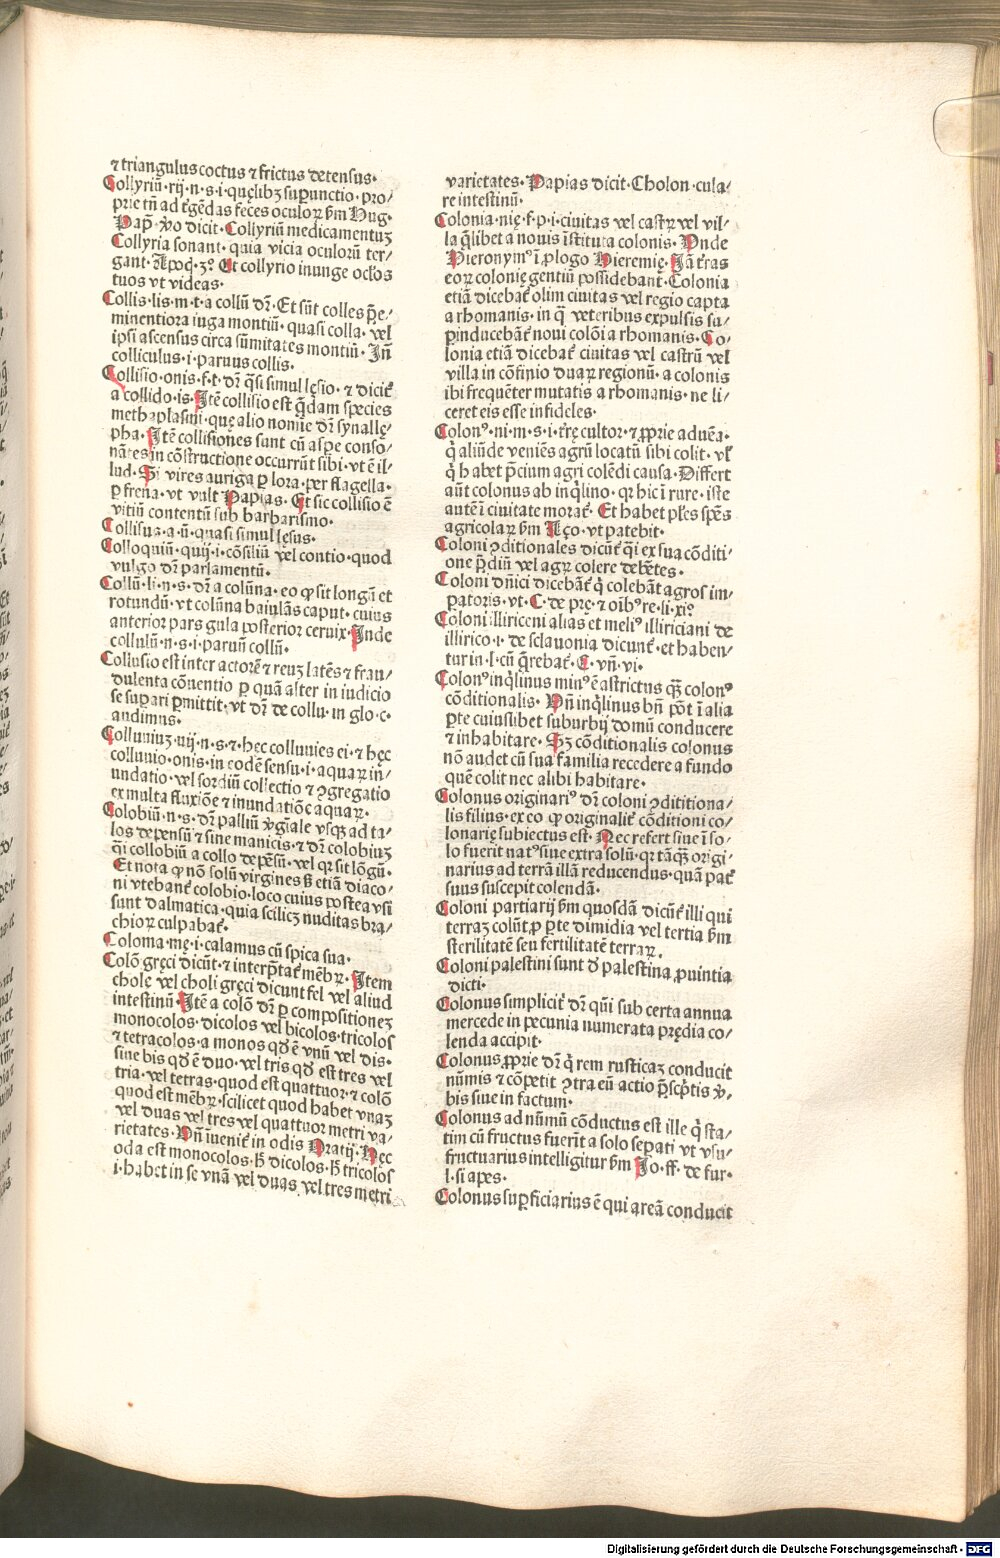 ⁊ triangulus coctus ⁊ frictus detensus·
Collyriū·rij·n·s·i·quęlibꝫ suꝑunctio·pro/
prie tn̄ ad t̓gēdas feces oculoꝝ ẜm Hug·
Pap̄·ꝟo dicit·Collyriū medicamentuꝫ
Collyria sonant·quia vicia oculorū ter/
gant·Apoc̄·3°·Et collyrio inunge oc̄los
tuos vt videas·
Collis·lis·m·t·a collū dr̄·Et sūt colles p̄e/
minentiora iuga montiū·quasi colla·vel
ipsi ascensus circa sūmitates montiū·Jn̄
colliculus·i·paruus collis·
Collisio·onis·f·t·dr̄ q̄si simul lęsio·⁊ dicit᷑
a collido·is·Jtē collisio est q̄dam species
methaplasmi·quę alio nomīe dr̄ synallę/
pha·Jtē collisiones sunt cū aspe conso/
nātes in cōstructione occurrūt sibi·vt ē il/
lud·Si vires auriga ꝑ lora·per flagella·
ꝑ frena·vt vult Papias·Et sic collisio ē
vitiū contentū sub barbarismo·
Collisus·a·ū·quasi simul lęsus·
Colloquiū·quij·i·cōsiliū vel contio·quod
vulgo dr̄ parlamentū·
Collū·li·n·s·dr̄ a colūna·eo ꝙ sit longū et
rotundū·vt colūna baiulās caput·cuius
anterior pars gula posterior ceruix·Jnde
collulū·n·s·i·paruū collū·
Collusio est inter actorē ⁊ reuꝫ latēs ⁊ frau/
dulenta cōuentio ꝑ quā alter in iudicio
se suꝑari ꝑmittit·vt dr̄ de collu·in glo·c·
audimus·
Colluuiuꝫ·uij·n·s·⁊·hec colluuies ei·⁊ hęc
colluuio·onis·in eodē sensu·i·aquaꝝ in/
undatio·vel sordiū collectio ⁊ ꝯgregatio
ex multa fluxiōe ⁊ inundatiōe aquaꝝ·
Colobiū·n·s·dr̄ palliū ꝟgīale vsqꝫ ad ta/
los depensū ⁊ sine manicis·⁊ dr̄ colobiuꝫ
q̄i collobiū a collo depēsū·vel qꝛ sit lōgū·
Et nota ꝙ nō solū virgines sꝫ etiā diaco/
ni vtebant᷑ colobio·loco cuius postea vsi
sunt dalmatica·quia scilicꝫ nuditas bra/
chioꝝ culpabat᷑·
Coloma·mę·i·calamus cū spica sua·
Colō gręci dicūt·⁊ interp̄tat᷑ mēbꝝ·Jtem
cholę vel choli gręci dicunt fel vel aliud
intestinū·Jtē a colō dr̄ ꝑ compositioneꝫ
monocolos·dicolos vel bicolos·tricolos
⁊ tetracolos·a monos qđ ē vnū vel dis·
siue bis qđ ē duo·vel tris qđ est tres vel
tria·vel tetras·quod est quattuor·⁊ colō
quod est mēbꝝ·scilicet quod habet vnaꝫ
vel duas vel tres vel quattuor metri va/
rietates·Vn̄ īuenit᷑ in odis Oratij·Hec
oda est monocolos·h̄ dicolos·h̄ tricolos
i·habet in se vnā vel duas vel tres metri
varietates·Papias dicit·Cholon·cula/
re intestinū·
Colonia·nię·f·p·i·ciuitas vel castꝝ vel vil/
la q̄libet a nouis īstituta colonis·Vnde
Hieronym⁹ ī ꝓlogo Hieremię·Jā t̓ras
eoꝝ colonię gentiū possidebant·Colonia
etiā dicebat᷑ olim ciuitas vel regio capta
a rhomanis·in q̄ veteribus expulsis su/
ꝑinducebāt᷑ noui colōi a rhomanis·Co/
lonia etiā dicebat᷑ ciuitas vel castrū vel
villa in cōfinio duaꝝ regionū·a colonis
ibi frequēter mutatis a rhomanis·ne li/
ceret eis esse infideles·
Colon⁹·ni·m·s·i·t̓rę cultor·⁊ ꝓprie aduēa·
q̄ aliūde veniēs agrū locatū sibi colit·vl̓
q̄ habet p̄cium agri colēdi causa·Differt
aūt colonus ab inq̄lino·qꝛ hic ī rure·iste
autē ī ciuitate morat᷑·Et habet pl̓es sp̄es
agricolaꝝ ẜm Aço·vt patebit·
Coloni ꝯditionales dicūt᷑ q̄i ex sua cōditi/
one p̄diū vel agꝝ colere debētes·
Coloni dn̄ici dicebāt᷑ q̄ colebāt agros im/
patoris·vt·C·de prę·⁊ oīb⁹ re·li·xi?
Coloni illiriceni alias et meli⁹ illiriciani de
illirico·i·de sclauonia dicunt᷑·et haben/
tur in·l·cū q̄rebat᷑·C·vn̄·vi·
Colon⁹ inq̄linus min⁹ ē astrictus qꝫ colon⁹
cōditionalis·Vn̄ inq̄linus bn̄ pōt ī alia
ꝑte cuiuslibet suburbij domū conducere
⁊ inhabitare·Sꝫ cōditionalis colonus
nō audet cū sua familia recedere a fundo
quē colit nec alibi habitare·
Colonus originari⁹ dr̄ coloni ꝯdititiona/
lis filius·ex eo ꝙ originalit᷑ cōditioni co/
lonarię subiectus est·Nec refert siue ī so/
lo fuerit nat⁹ siue extra solū·qꝛ tāqꝫ origi/
narius ad terrā illā reducendus·quā pat᷑
suus suscepit colendā·
Coloni partiarij ẜm quosdā dicūt᷑ illi qui
terraꝫ colūt ꝓ ꝑte dimidia vel tertia ẜm
sterilitatē seu fertilitatē terraꝝ·
Coloni palestini sunt đ palestina ꝓuintia
dicti·
Colonus simplicit᷑ dr̄ qn̄i sub certa annua
mercede in pecunia numerata prędia co/
lenda accipit·
Colonus ꝓprie dr̄ q̄ rem rusticaꝫ conducit
nūmis ⁊ cōpetit ꝯtra eū actio p̄scp̄tis ꝟ·
bis siue in factum·
Colonus ad nūmū cōductus est ille q̄ sta/
tim cū fructus fuerūt a solo sepati vt vsu/
fructuarius intelligitur ẜm Jo·ff·de fur·
l·si apes·
Colonus suꝑficiarius ē qui areā conducit
Digitalisierung gefördert durch die Deutsche Forschungsgemeinschaft - DFG